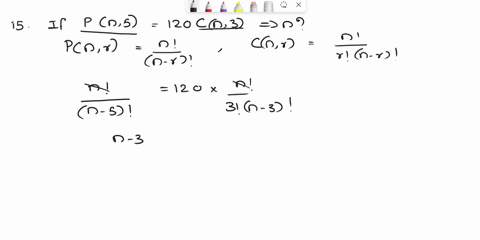 15. If P(n,5) = 120 C(n,3) => n?
P(n,r) = n!/(n-r)! C(n,r) = n!/r!(n-r)!
n!/(n-5)! = 120 × n!/3!(n-3)!
n-3